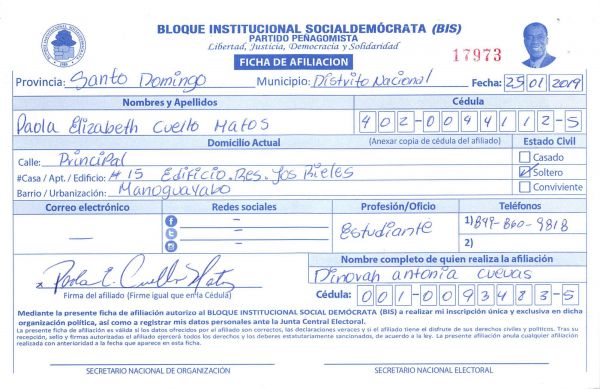 BLOQUE INSTITUCIONAL SOCIALDEMÓCRATA (BIS)
PARTIDO PEÑAGOMISTA
Libertad, Justicia, Democracia y Solidaridad
FICHA DE AFILIACION
17973
Provincia: Santo Domingo Municipio: Distrito Nacional Fecha: 25 01 2019
Nombres y Apellidos Cédula
Paola Elizabeth Cuello Matos 402-0094112-5
Domicilio Actual (Anexar copia de cédula del afiliado) Estado Civil
Calle: Principal Casado
#Casa / Apt. / Edificio: #15 Edificio. Res. Los Rieles Soltero
Barrio / Urbanización: Manoguayabo Conviviente
Correo electrónico Redes sociales Profesión/Oficio Teléfonos
— — Estudiante 1) 849-860-9818
— 2)
—
Nombre completo de quien realiza la afiliación
Dinovah antonia cuevas
Paola E. Cuello Matos
Firma del afiliado (Firme igual que en la Cédula) Cédula: 001-0093483-5
Mediante la presente ficha de afiliación autorizo al BLOQUE INSTITUCIONAL SOCIAL DEMÓCRATA (BIS) a realizar mi inscripción única y exclusiva en dicha
organización política, así como a registrar mis datos personales ante la Junta Central Electoral.
La presente ficha de afiliación es válida si los datos ofrecidos por el afiliado son correctos, las declaraciones veraces y si el afiliado tiene el disfrute de sus derechos civiles y políticos. Tras su
recepción, sello y firmas autorizadas el afiliado ejercerá todos los derechos y los deberes estatutariamente sancionados, de acuerdo a la ley. La presente afiliación anula cualquier afiliación
realizada con anterioridad a la fecha que aparece en esta ficha.
SECRETARIO NACIONAL DE ORGANIZACIÓN SECRETARIO NACIONAL ELECTORAL